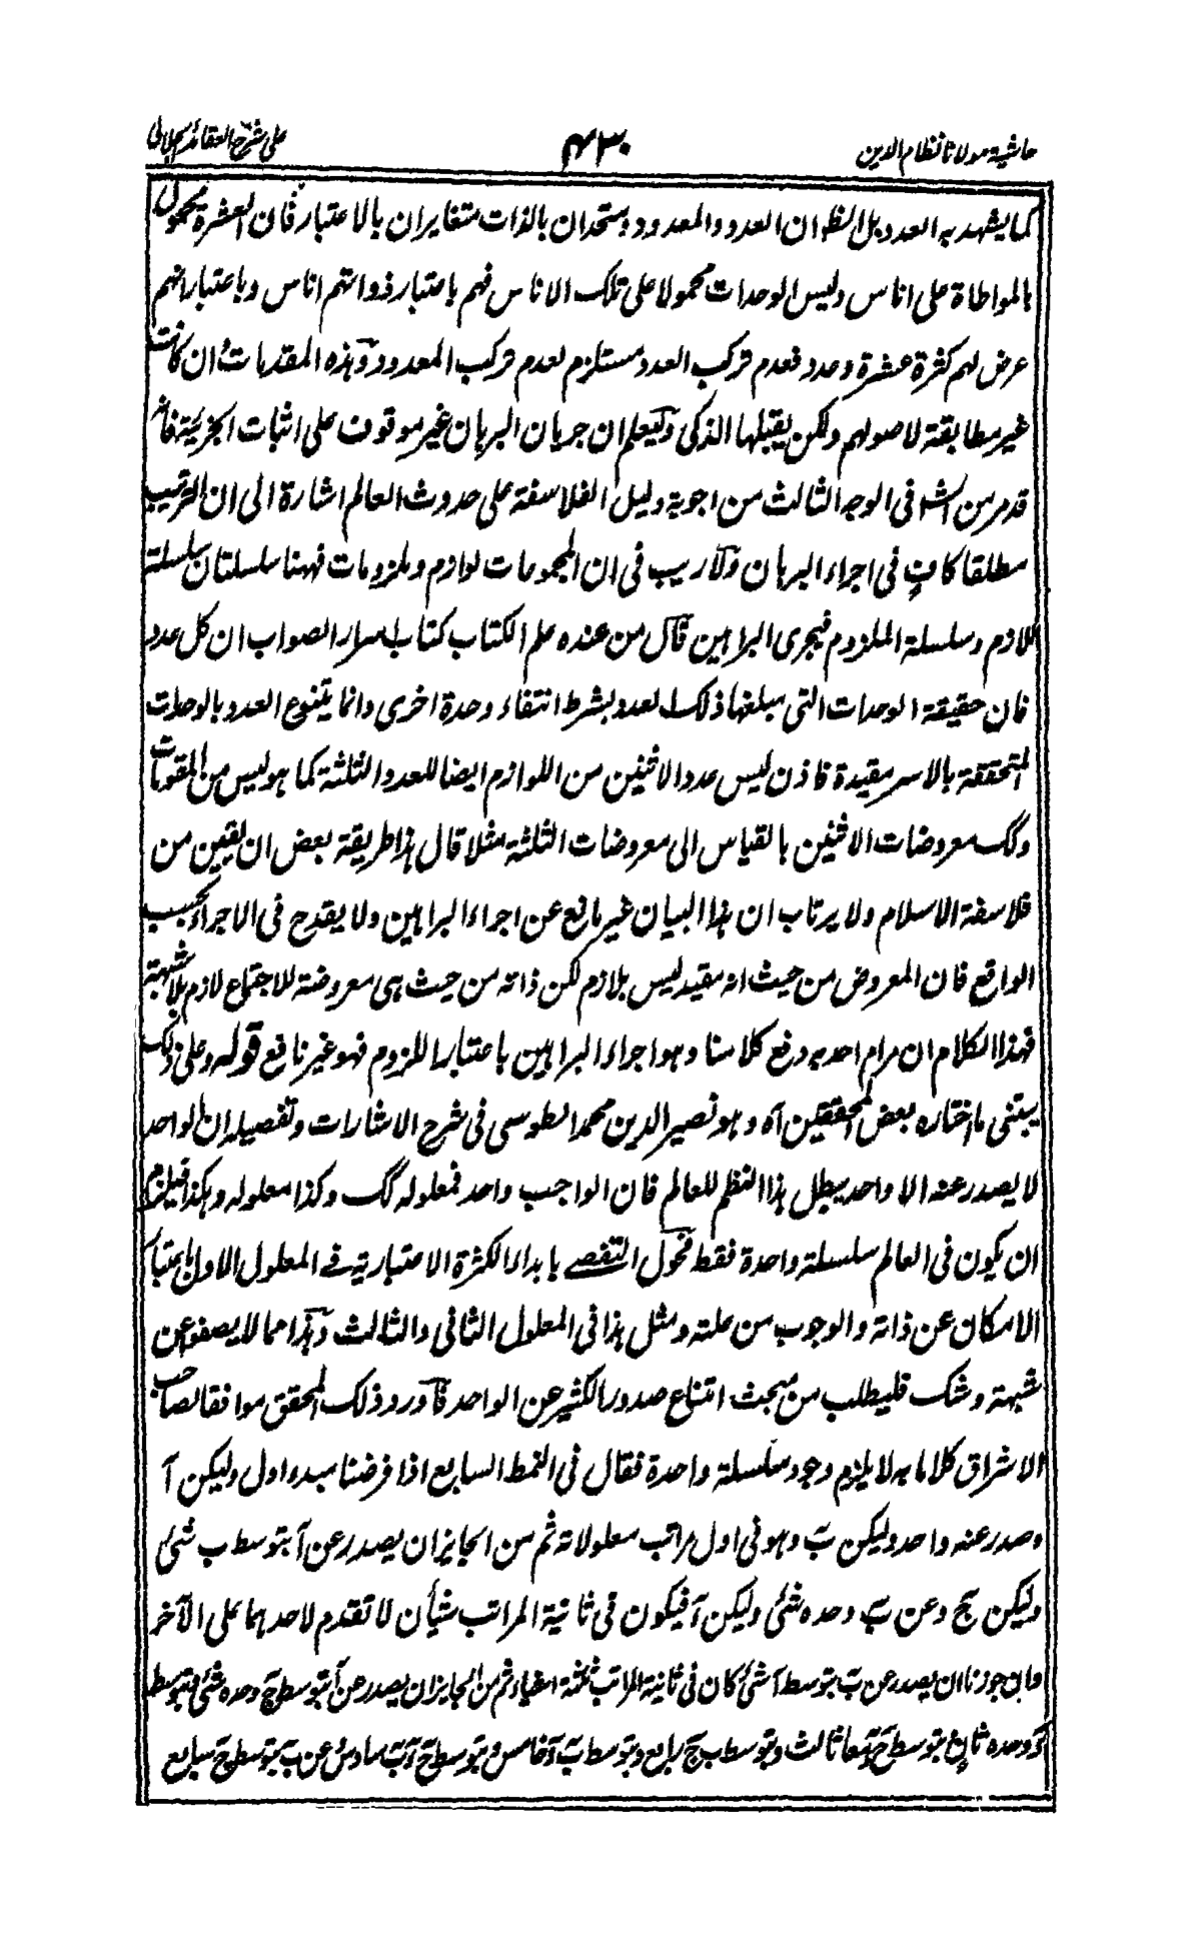 حاشیة مولانا نظام الدین
۴۳۰
علی شرح العقائد الجلالی
کما یشهد به العدد بل الظ ان العدد والمعدود متحدان بالذات متغایران بالاعتبار فان العشرة محمول
بالمواطاة علی اناس ولیس الوحدات محمولا علی تلک الاناس فهم باعتبار ذواتهم اناس وباعتبار انهم
عرض لهم کثرة عشرة وعدد فعدم ترکب العدد مستلزم لعدم ترکب المعدود وهذه المقدمات وان کانت
غیر مطابقة لاصولهم ولکن یقبلها الذکی ولیعلم ان جریان البرهان غیر موقوف علی اثبات الجزئیة فانه
قد مر من الش فی الوجه الثالث من اجوبة دلیل الفلاسفة علی حدوث العالم اشارة الی ان الترتیب
مطلقا کافٍ فی اجراء البرهان ولا ریب فی ان المجموعات لوازم وملزومات فههنا سلسلتان سلسلة
اللازم وسلسلة الملزوم فیجری البراهین قال من عنده علم الکتاب کتاب اسرار الصواب ان کل عدد
فان حقیقة الوحدات التی مبلغها ذلک العدد بشرط انتفاء وحدة اخری وانما یتنوع العدد بالوحدات
المتحققة بالاسر مقیدة فاذن لیس عدد الاثنین من اللوازم ایضا للعدد الثلثة کما هو لیس من المقومات
وکک معروضات الاثنین بالقیاس الی معروضات الثلثة مثلا قال هذا طریقة بعض السابقین من
فلاسفة الاسلام ولا یرتاب ان هذا البیان غیر مانع عن اجراء البراهین ولا یقدح فی الاجراء بحسب
الواقع فان المعروض من حیث انه مقید لیس بلازم لکن ذاته من حیث هی معروضة للاجتماع لازم بلا شبهة
فهذا الکلام ان مرام احد به دفع کلامنا وهو اجراء البراهین باعتبار اللزوم فهو غیر نافع قوله وعلی ذلک
یبتنی ما اختاره بعض المحققین آه وهو نصیر الدین محمد الطوسی فی شرح الاشارات وتفصیله ان الواحد
لا یصدر عنه الا واحد یبطل هذا النظم للعالم فان الواجب واحد فمعلوله کک وکذا معلوله وهکذا فیلزم
ان یکون فی العالم سلسلة واحدة فقط فحول التفصے بابداء الکثرة الاعتباریة فے المعلول الاول باعتبار
الامکان عن ذاته والوجوب من علته ومثل هذا فی المعلول الثانی والثالث وهذا مما لا یصفو عن
شبهة وشک فلیطلب من مبحث امتناع صدور الکثیر عن الواحد فاورد ذلک المحقق موافقا لصاحب
الاشراق کلاما به لا یلزم وجود سلسلة واحدة فقال فی النمط السابع اذا فرضنا مبدء اول ولیکن آ
وصدر عنه واحد ولیکن ب وهو فی اول مراتب معلولاته ثم من الجایز ان یصدر عن آ بتوسط ب شئ
ولیکن ج وعن ب وحده شئ ولیکن د فیکون فی ثانیة المراتب شیأن لا تقدم لاحدهما علی الآخر
وان جوزنا ان یصدر عن ب بتوسط آ شئ کان فی ثانیة المراتب ثلثة اشیاء ثم من الجایز ان یصدر عن آ بتوسط ج وحده شئ وبتوسط
د وحده ثانٍ وبتوسط ج د معا ثالث وبتوسط ب ج رابع وبتوسط ب د خامس وبتوسط ج د ب سادس وعن ب بتوسط ج سابع